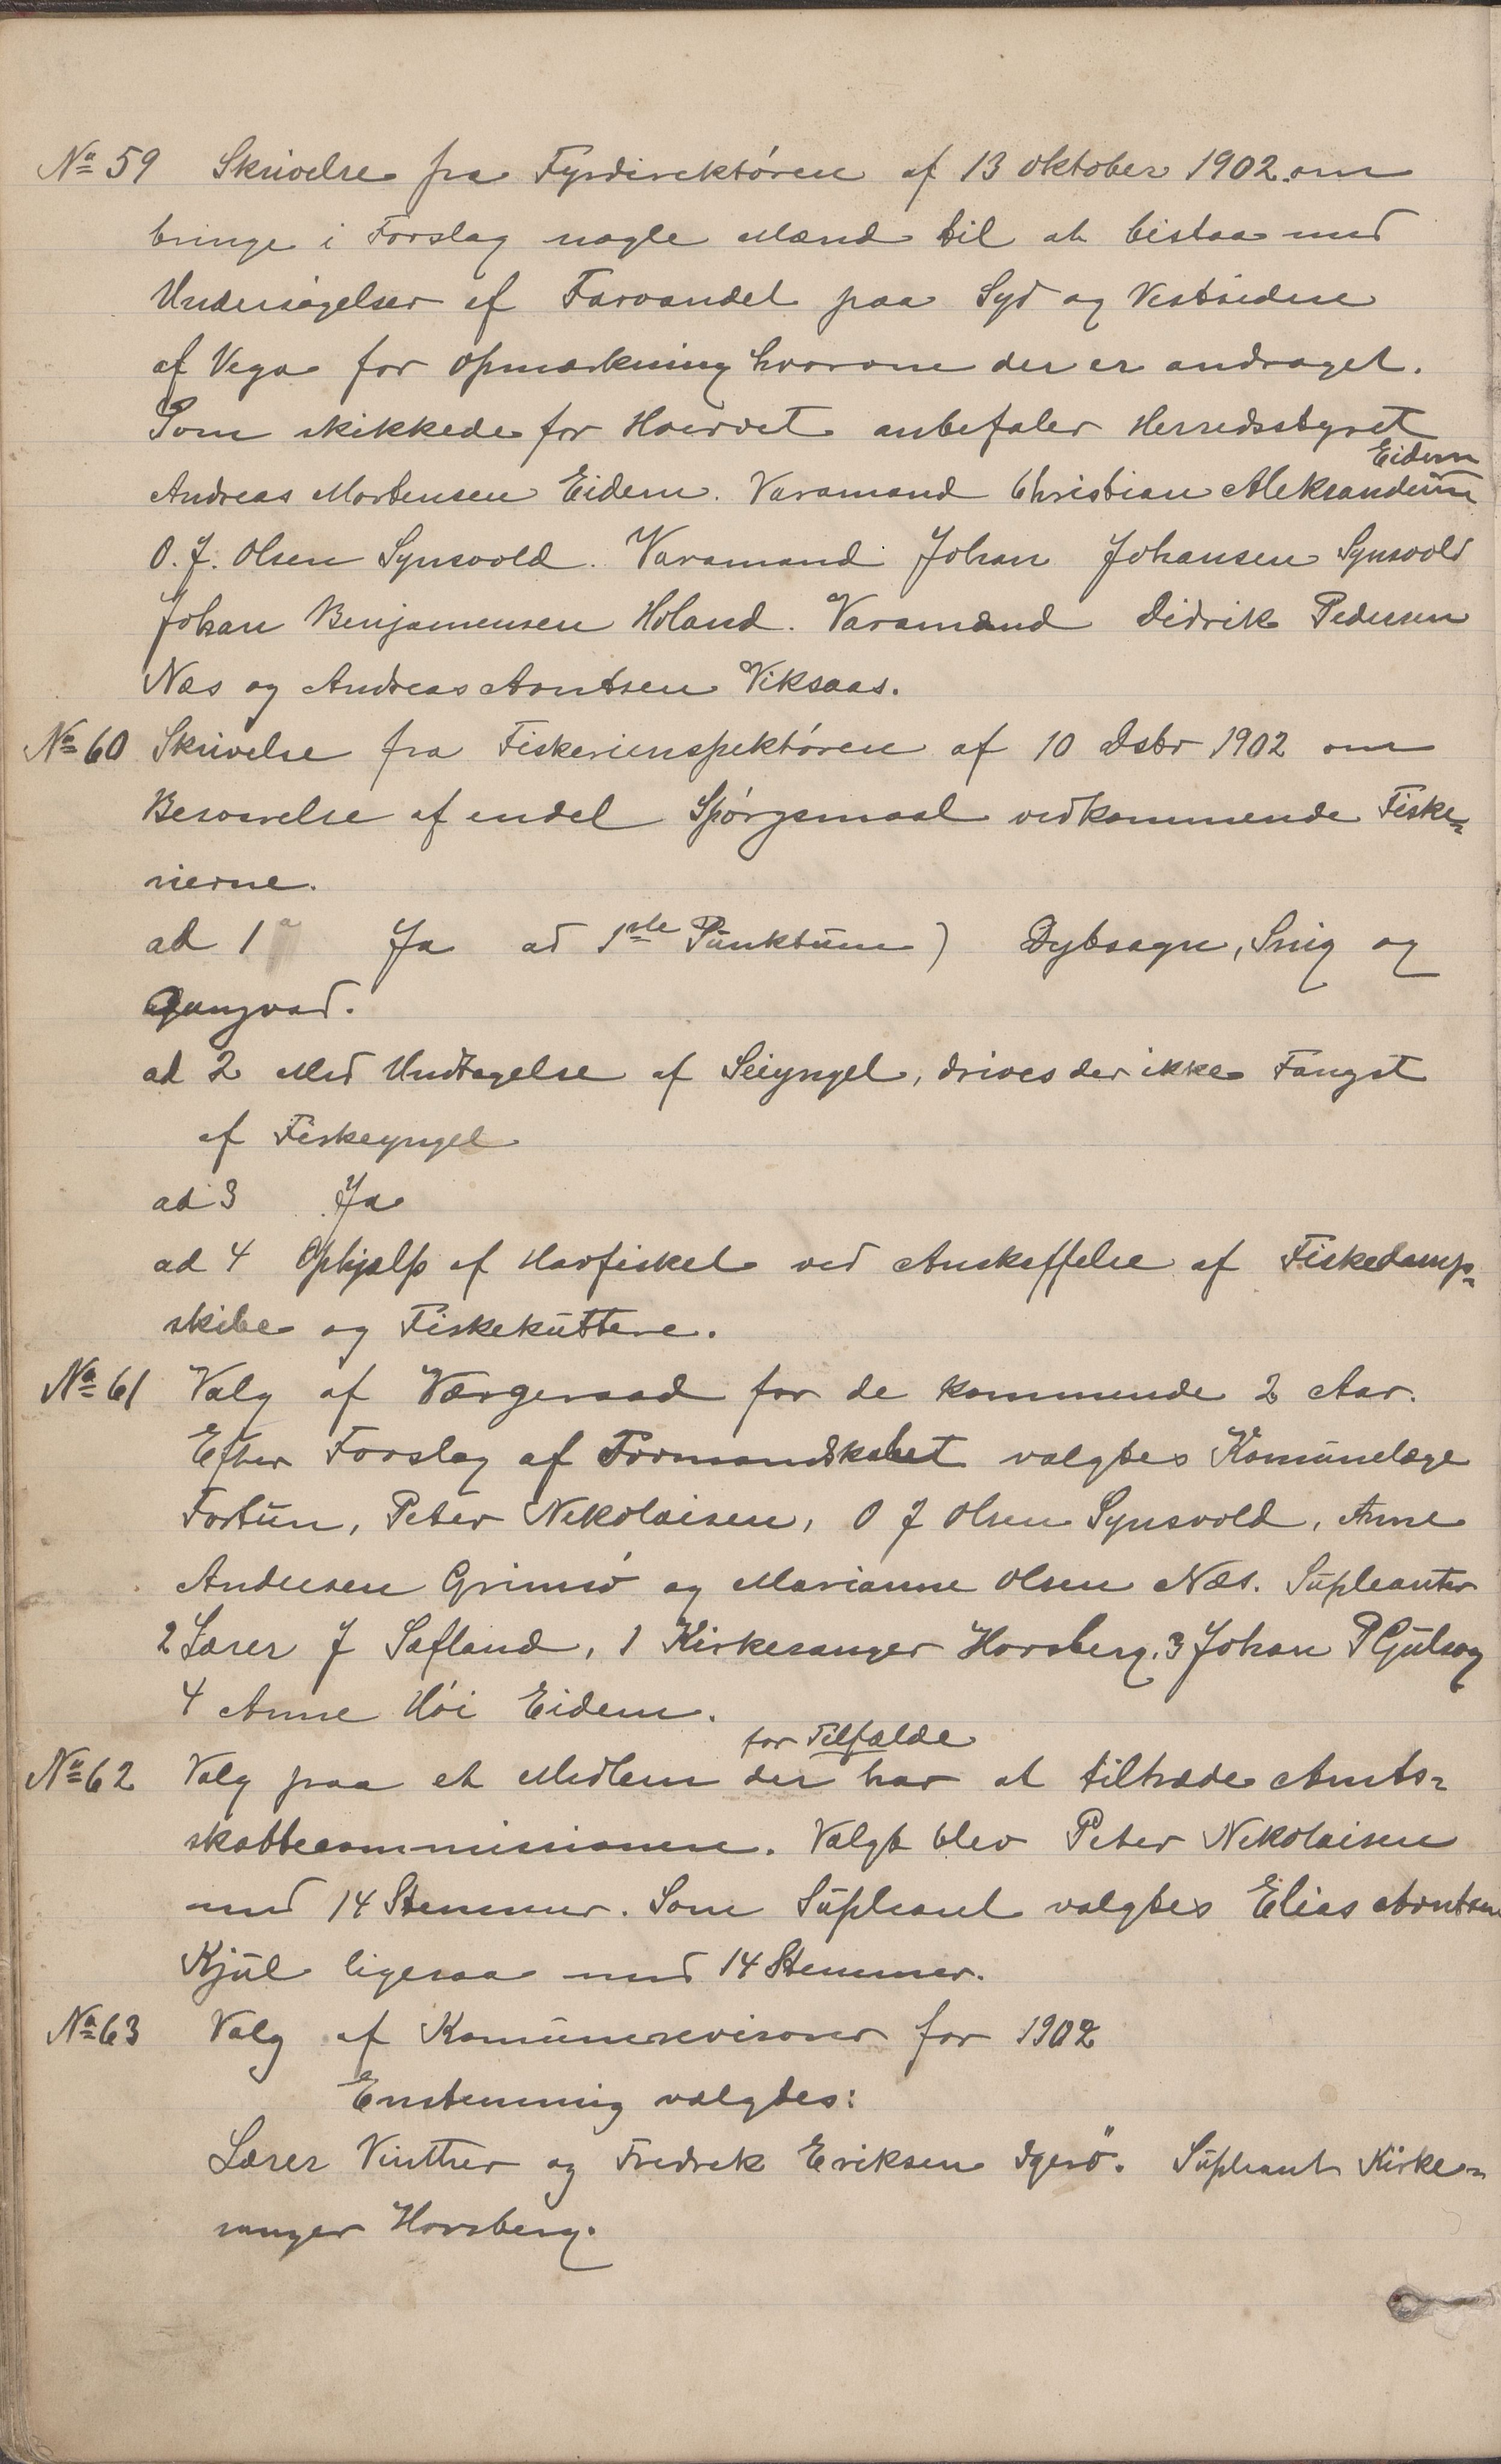 No 59 Skrivelse fra Fyrdirektøren af 13 Oktober 1902 om
bringe i Forslag nogle Mænd til at bistaa med
Undersøgelser af Farvandet paa Syd og Vestsiden
af Vega for Opmærkning hvorom der er andraget.
Som skikkede for Hvervet anbefaler Herredsstyret
Andreas Mortensen Eidem. Varamand Christian Aleksandersen Eidem
O. J. Olsen Synsvold. Varamand Johan Johansen Synsvold
Johan Benjamensen Holand. Varamænd Didrik Pedersen
Næs og Andreas Arntsen Viksaas.
No 60 Skrivelse fra Fiskeriinspektøren af 10 Dsbr 1902 om
Besvarelse af endel Spørgsmaal vedkommende Fiske=
rierne.
ad 1 Ja ad 1ste Punktum) Dybsagn, Snig og
Gangvad.
ad 2 Med Undtagelse af Seiyngel, drives der ikke Fangst
af Fiskeyngel
ad 3 Ja
ad 4 Ophjælp af Havfisket ved Anskaffelse af Fiskedamp=
skibe og Fiskekuttere.
No 61 Valg af Værgeraad for de kommende 2 Aar.
Efter Forslag af Formandskabet valgtes Komunelæge
Fortun, Peter Nikolaisen, O J Olsen Synsvold, Anne
Andersen Grimsø og Marianne Olsen Næs. Supleanter
2 Lærer J Safland, 1 Kirkesanger Horsberg, 3 Johan P Gulsvag
4 Anne Høi Eidem.
for Tilfælde
No 62 Valg paa et Medlem der har at tiltræde Amts=
skattecommissionen. Valgt blev Peter Nikolaisen
med 14 Stemmer. Som Supleant valgtes Elias Arntsen
Kjul ligesaa med 14 Stemmer.
No 63 Valg af Komunerevisorer for 1902
Enstemmig valgtes:
Lærer Vinther og Fredrek Eriksen Igerö. Supleant Kirke=
sanger Horsberg.